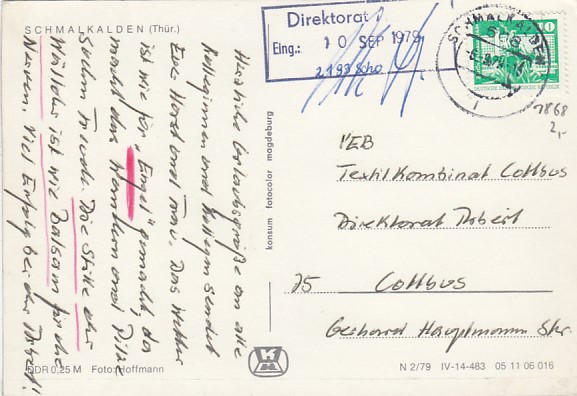 SCHMALKALDEN (Thür.)
Herzliche Urlaubsgrüße an alle
Kolleginnen und Kollegen sendet
Euer Horst und Frau. Das Wetter
ist wie für "Engel" gemacht, da
macht das Wandern und Pilze
suchen Freude. Die Stille der
Wälder ist wie Balsam für die
Nerven. Viel Erfolg bei der Arbeit!
DDR 0,25 M Foto: Hoffmann
konsum fotocolor magdeburg
Direktorat
Eing.: 10 SEP 1979
SCHMALKALDEN
10
1868
2,-
VEB
Textilkombinat Cottbus
Direktorat Arbeit
75 Cottbus
Gerhard Hauptmann Str.
N 2/79 IV-14-483 05 11 06 016